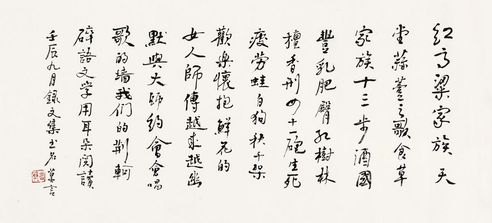 红高粱家族天
堂蒜薹之歌食草
家族十三步酒國
豐乳肥臀红樹林
檀香刑四十一砲生死
疲劳蛙白狗秋千架
歡樂懷抱鮮花的
女人師傅越來越幽
默與大師約會會唱
歌的墙我们的荆軻
碎語文学用耳朵阅讀
壬辰九月録文集书名 莫言